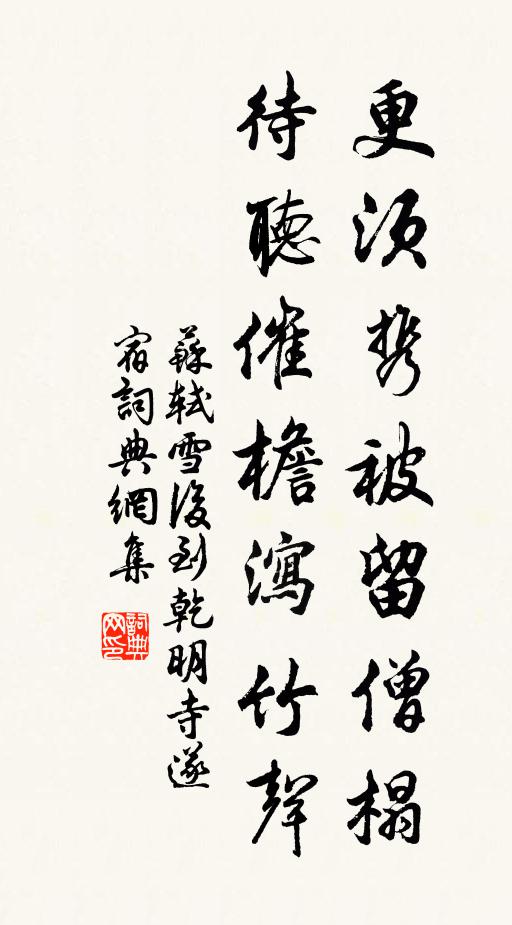 更須携被留僧榻
待聽催檐瀉竹聲
蘇軾雪後到乾明寺遂
宿詞典網集
詞典网印